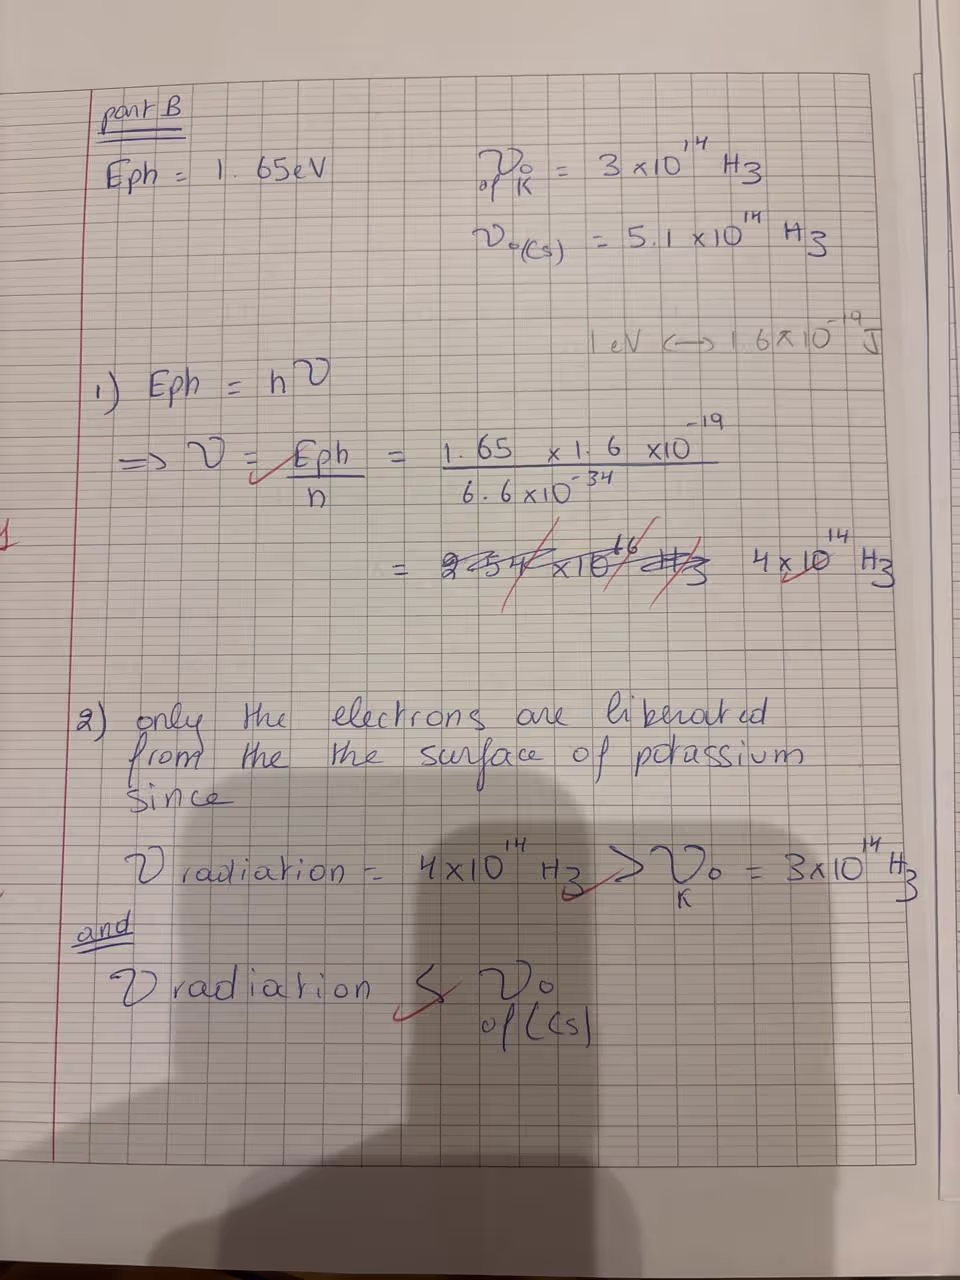 part B
Eph = 1.65eV
ν₀ of K = 3 ×10¹⁴ Hz
ν₀(Cs) = 5.1 ×10¹⁴ Hz
1 eV ↔ 1.6×10⁻¹⁹ J
1) Eph = hν
⇒ ν = Eph/h = 1.65 ×1.6 ×10⁻¹⁹ / 6.6 ×10⁻³⁴
= 4×10¹⁴ Hz
1
2) only the electrons are liberated
from the the surface of potassium
since
ν radiation = 4×10¹⁴ Hz > ν₀ K = 3×10¹⁴ Hz
and
ν radiation < ν₀ of (Cs)